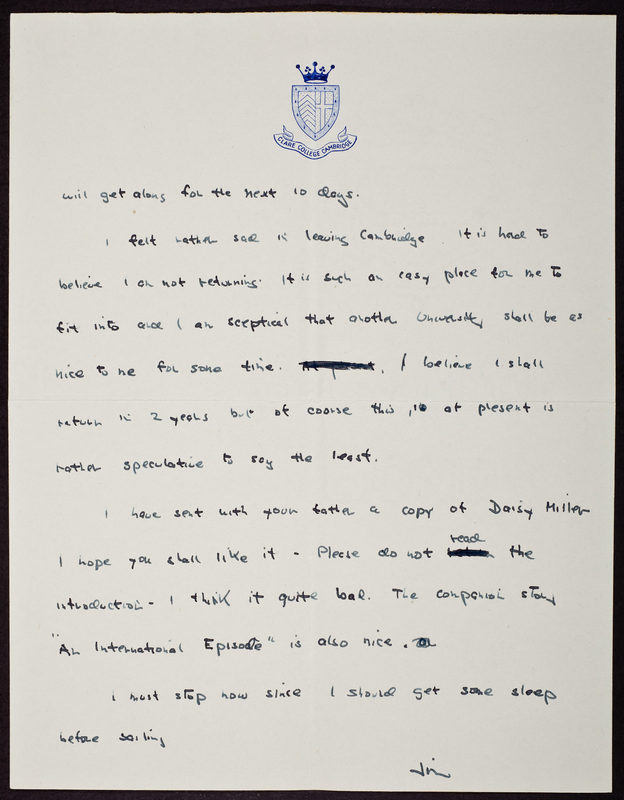 CLARE COLLEGE CAMBRIDGE
will get along for the next 10 days.
I felt rather sad in leaving Cambridge It is hard to
believe I am not returning. It is such an easy place for me to
fit into and I am sceptical that another University shall be as
nice to me for some time. I believe I shall
return in 2 years but of course this, at present is
rather speculative to say the least.
I have sent with your father a copy of Daisy Miller
I hope you shall like it - Please do not read the
introduction - I think it quite bad. The companion story
"An International Episode" is also nice.
I must stop now since I should get some sleep
before sailing
Jim